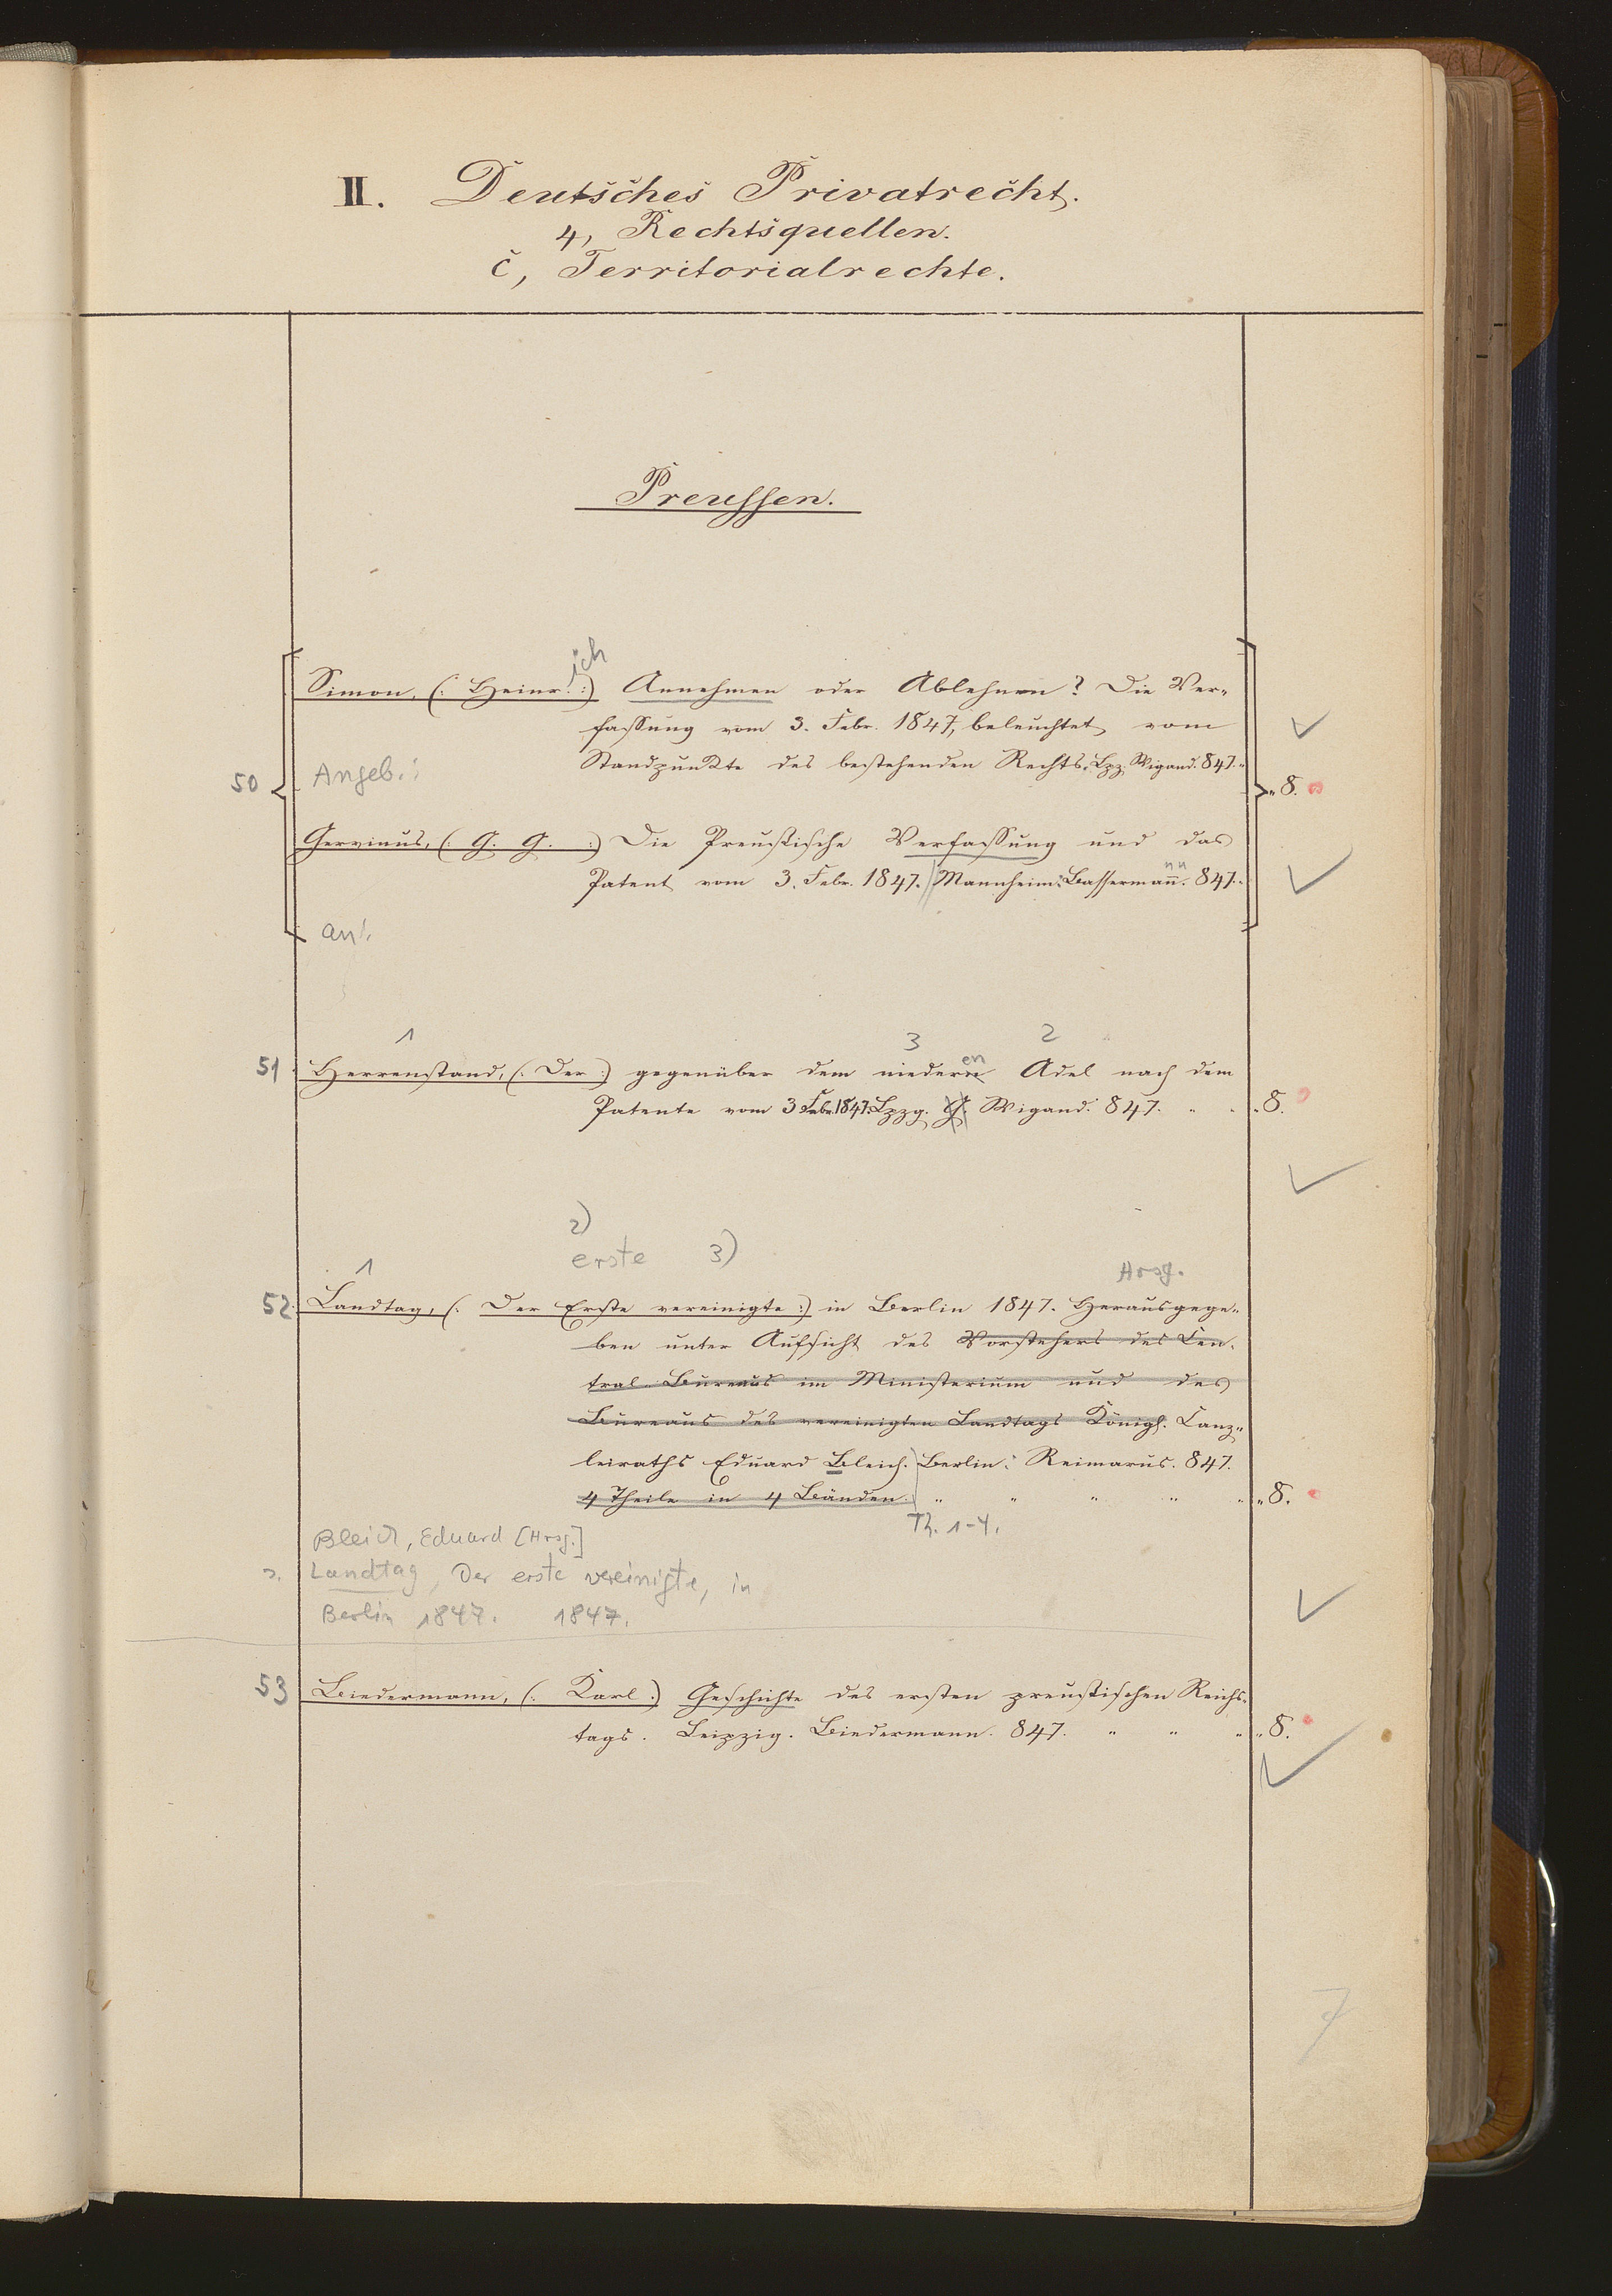 II. Deutsches Privatrecht.
4, Rechtsquellen.
c, Territorialrechte.
Preussen.
ich
Simon, (: Heinr. :) Annehmen oder Ablehnen? Die Ver-
fassung vom 3. Febr. 1847, beleuchtet vom
Standpunkte des bestehenden Rechts. Lpz. Wigand. 847.
50 Angeb.: 8.
Gervinus, (: G. G. :) Die Preußische Verfassung und das
nn
Patent vom 3. Febr. 1847. Mannheim: Bassermañ. 847.
an:
1 3 2
en
51 Herrenstand, (: Der :) gegenüber dem niedern Adel nach dem
Patente vom 3 Febr. 1847. Lpzg. O. Wigand. 847. " " 8.
2)
erste 3)
1 Hrsg.
52. Landtag, (: Der Erste vereinigte :) in Berlin 1847. Herausgege-
ben unter Aufsicht des Vorstehers des Cen-
tral-Bureaus im Ministerium und des
Bureaus des vereinigten Landtags Königl. Canz-
leiraths Eduard Bleich. Berlin: Reimarus. 847.
4 Theile in 4 Bänden. " " " " " 8.
Th. 1-4.
Bleich, Eduard [Hrsg.]
2. Landtag, Der erste vereinigte, in
Berlin 1847. 1847.
53 Biedermann, (: Karl :) Geschichte des ersten preußischen Reichs-
tags. Leipzig. Biedermann. 847. " " " 8.
7